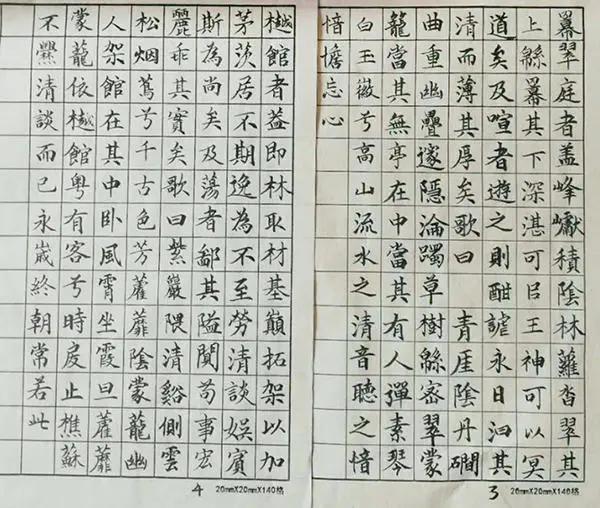 羃翠庭者盖峰巘積陰林蘿沓翠其
上緜羃其下深湛可㠯王神可以冥
道矣及喧者遊之則酣謔永日汩其
清而薄其厚矣歌曰 青崖陰丹磵
曲重幽疊邃隱淪躅草樹緜密翠蒙
籠當其無亭在中當其有人彈素琴
白玉徽兮高山流水之清音聽之愔
愔憺忘心
3 20mmX20mmX140格
樾館者益即林取材基巔拓架以加
茅茨居不期逸為不至勞清談娛賓
斯為尚矣及蕩者鄙其隘聞苟事宏
麗乖其實矣歌曰紫巖隈清谿側雲
松烟蔦兮千古色芳藿蘼陰蒙籠幽
人架館在其中卧風霄坐霞旦藿蘼
蒙籠依樾館粵有客兮時戾止樵蘇
不爨清談而已永嵗終朝常若此
4 20mmX20mmX140格